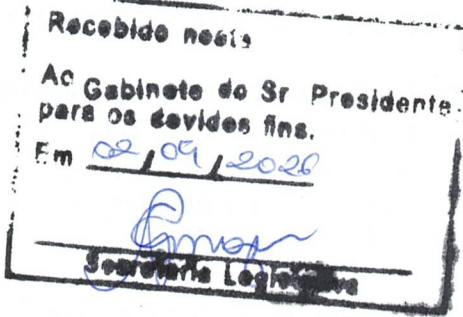 Recebido nesta
Ao Gabinete do Sr Presidente
para os devidos fins.
Em 02/09/2026
Secretaria Legislativa